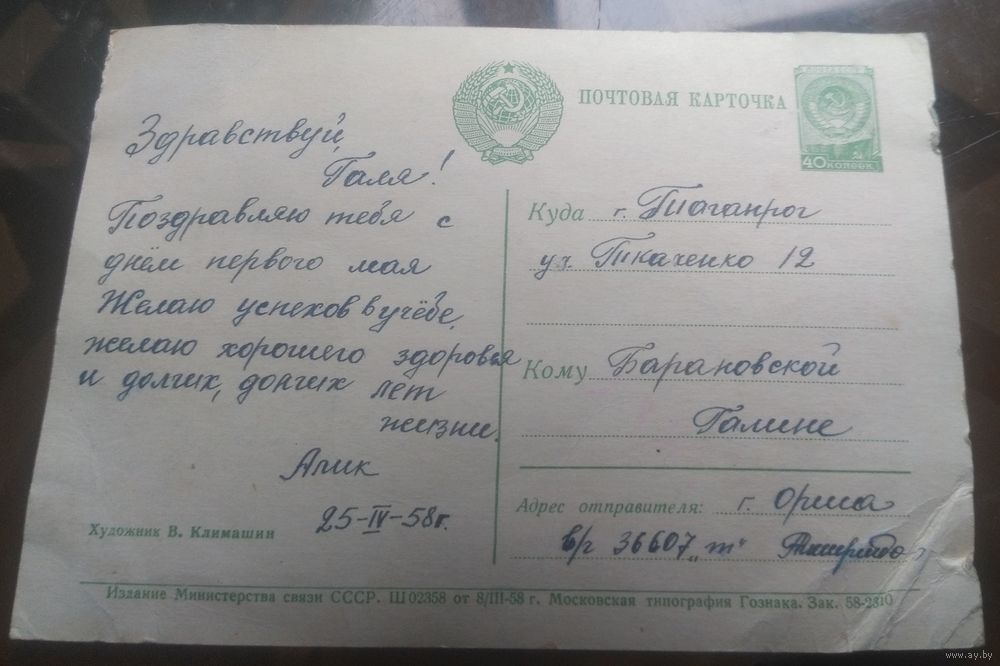 ПОЧТОВАЯ КАРТОЧКА
40 КОПЕЕК
Здравствуй,
Галя!
Поздравляю тебя с
днём первого мая
Желаю успехов в учёбе,
желаю хорошего здоровья
и долгих, долгих лет
жизни.
Алик
25-IV-58г.
Художник В. Климашин
Куда г. Таганрог
ул. Ткаченко 12
Кому Барановской
Галине
Адрес отправителя: г. Орша
в/ч 36607 „т"
Издание Министерства связи СССР. Ш 02358 от 8/III-58 г. Московская типография Гознака. Зак. 58-2310
www.ay.by